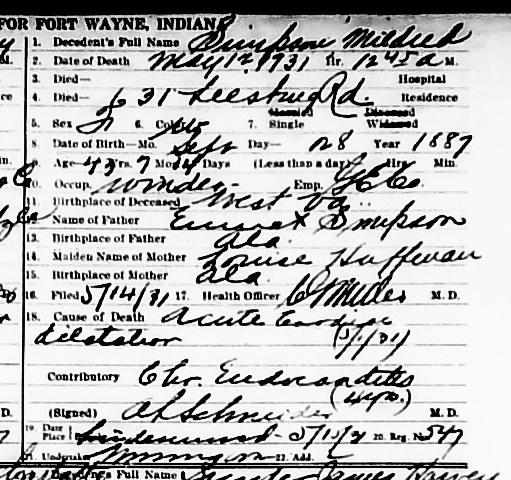 FOR FORT WAYNE, INDIANA
1. Decedent's Full Name Simpson Mildred
2. Date of Death May 12 1931 Hr. 12 45 a M.
3. Died— Hospital
4. Died— 631 Leesburg Rd. Residence
Married Divorced
5. Sex F 6. Color W 7. Single Widowed
8. Date of Birth—Mo. Sept Day— 28 Year 1887
9. Age— 43 Yrs. 7 Mos. 14 Days (Less than a day) Hrs. Min.
10. Occup. Winder Emp. G E Co.
11. Birthplace of Deceased West Va.
12. Name of Father Emmet Simpson
13. Birthplace of Father Ala.
14. Maiden Name of Mother Louise Huffman
15. Birthplace of Mother Ala.
16. Filed 5/14/31 17. Health Officer M. D.
18. Cause of Death Acute Cardiac
dilatation (5/1/31)
Contributory Chr. Endocarditis
(4 yrs.)
(Signed) A L Schneider M. D.
19. Date
Place Lindenwood 5/15/31 20. Reg. No. 547
21. Undertaker 22. Add.
Full Name James Harvey